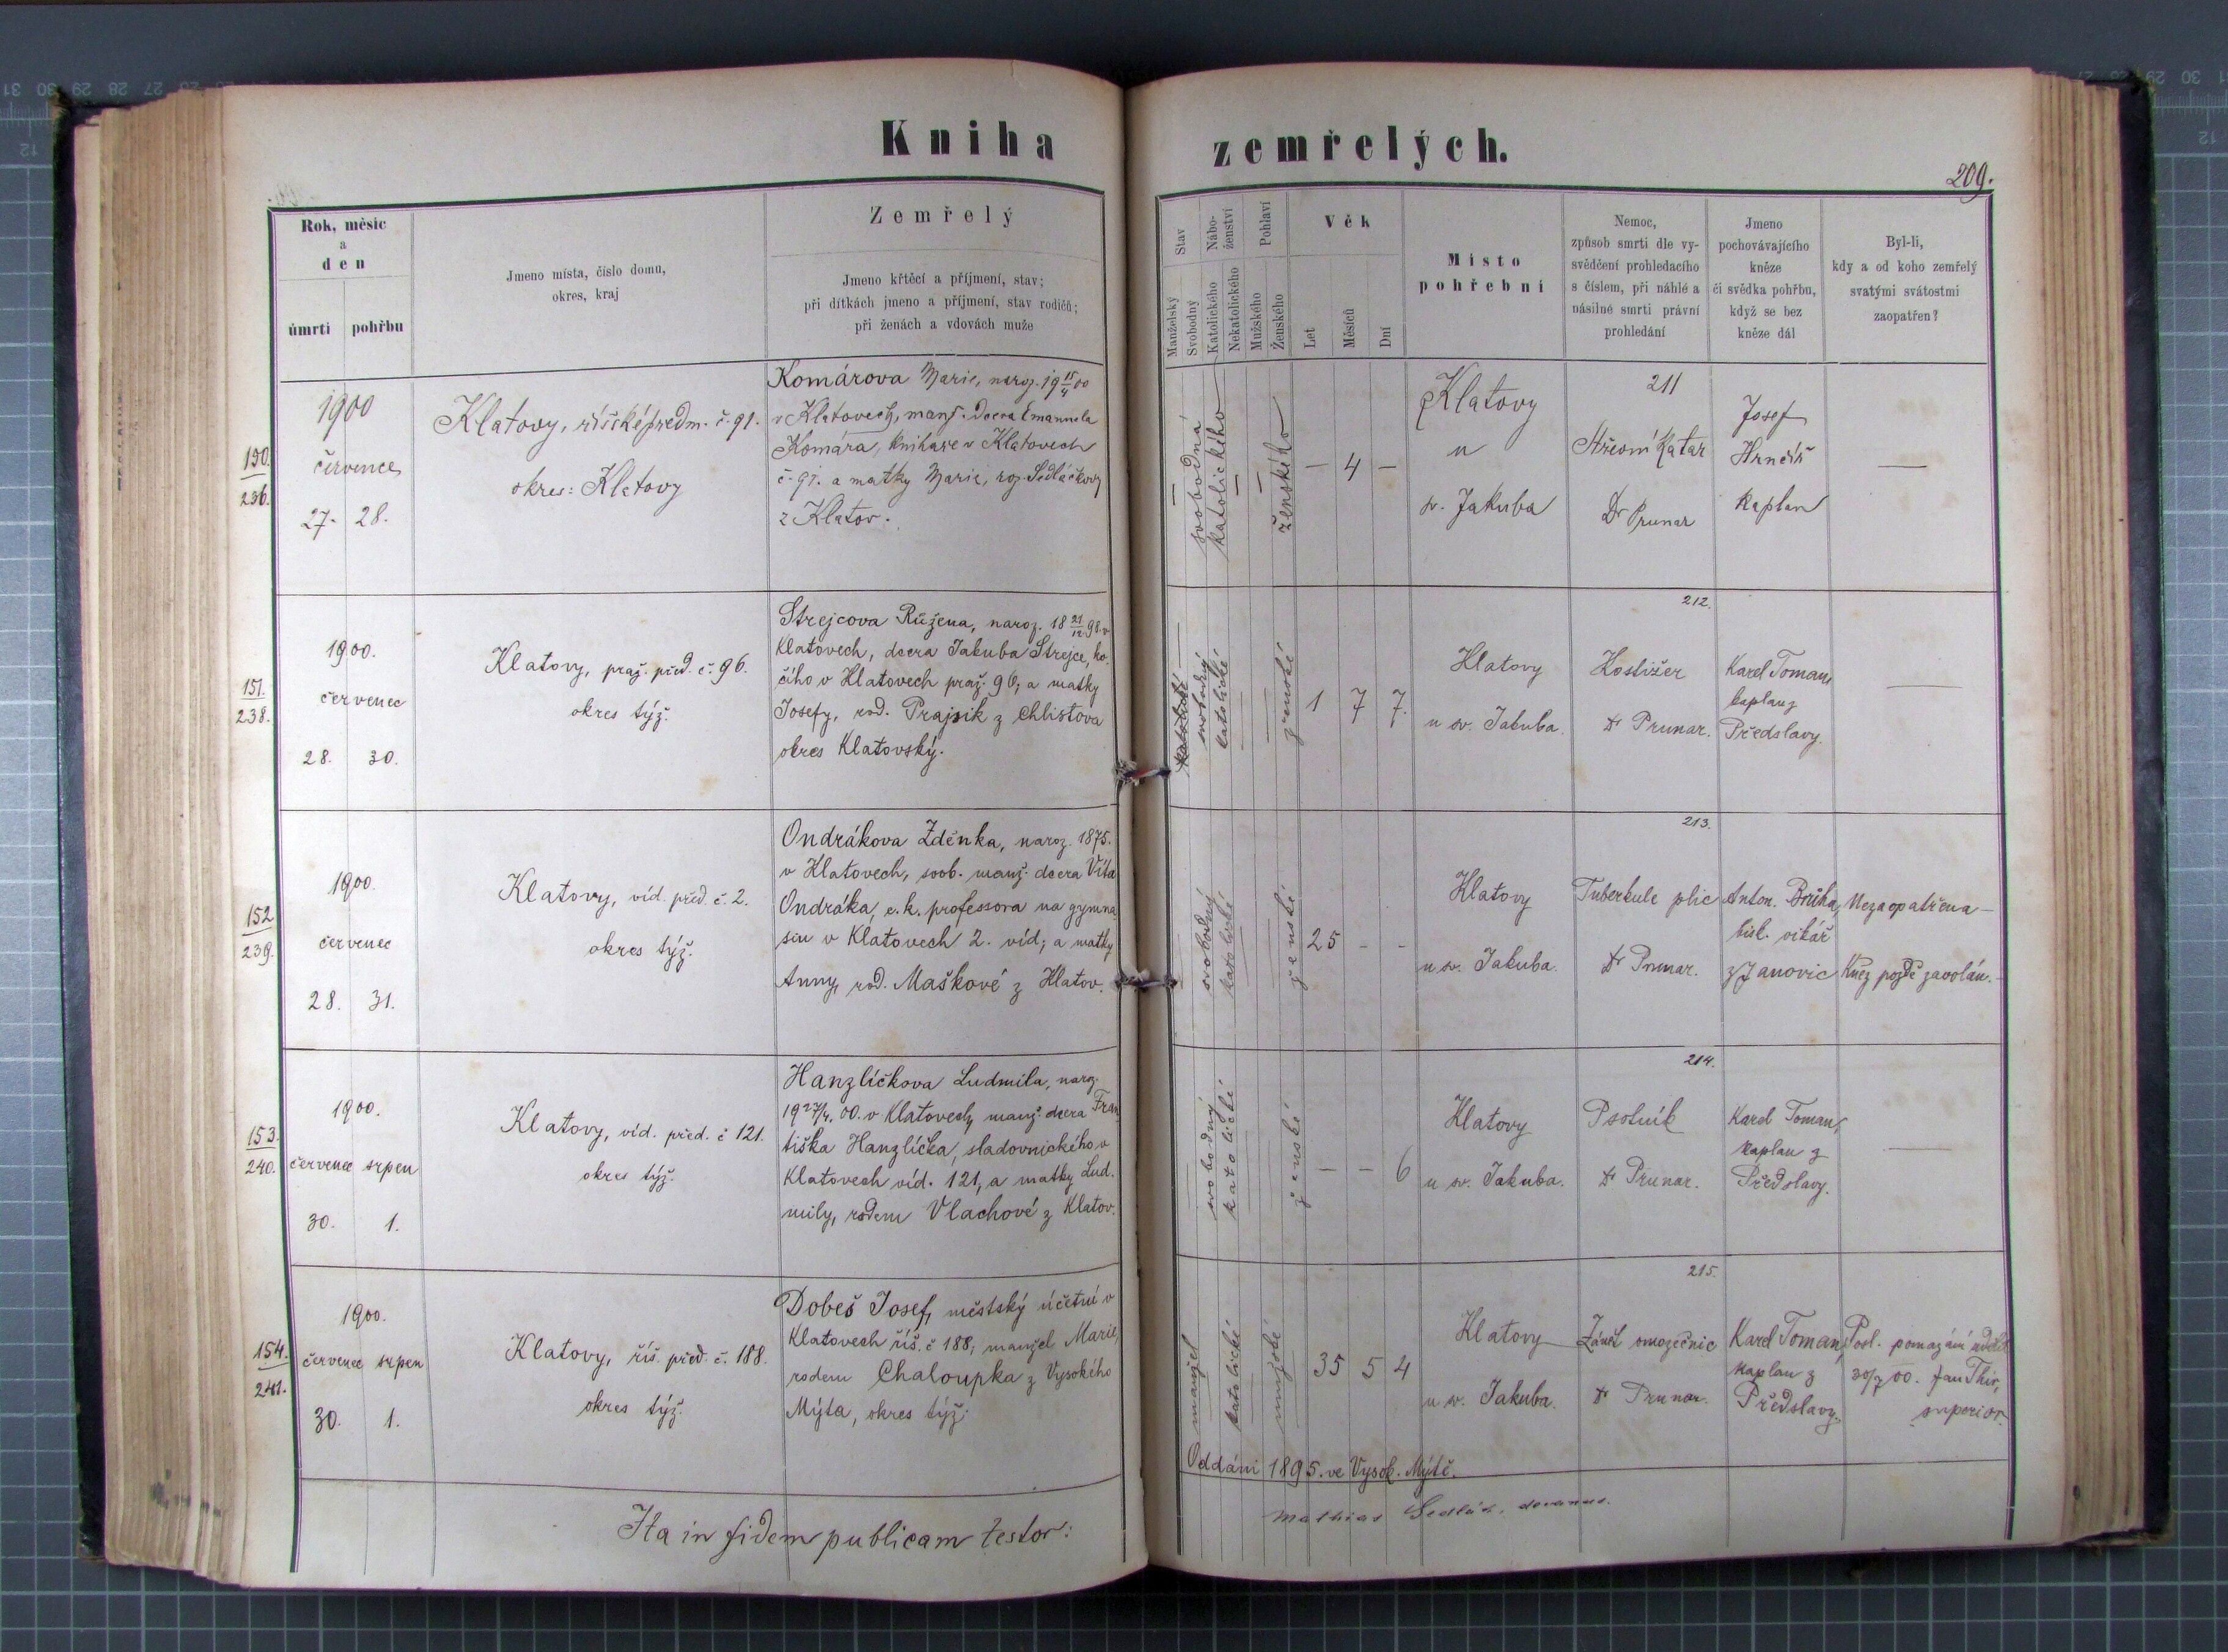 Kniha zemřelých.
209.
Rok, měsíc
a
den
úmrtí pohřbu
Jmeno místa, číslo domu,
okres, kraj
Zemřelý
Jmeno křtěcí a příjmení, stav;
při dítkách jmeno a příjmení, stav rodičů;
při ženách a vdovách muže
Stav
Manželský
Svobodný
Nábo-
ženství
Katolického
Nekatolického
Pohlaví
Mužského
Ženského
Věk
Let
Měsíců
Dní
Místo
pohřební
Nemoc,
způsob smrti dle vy-
svědčení prohledacího
s číslem, při náhlé a
násilné smrti právní
prohledání
Jmeno
pochovávajícího
kněze
či svědka pohřbu,
když se bez
kněze dál
Byl-li,
kdy a od koho zemřelý
svatými svátostmi
zaopatřen?
150.
236.
1900
červenec
27. 28.
Klatovy, říšské předm. č. 91.
okres: Klatovy
Komárova Marie, naroz. 19 15/4 00
v Klatovech, manž. dcera Emanuela
Komára, knihaře v Klatovech
č. 91. a matky Marie, roz. Sedláčkovy
z Klatov.
—
svobodná
katolického
—
—
ženského
— 4 —
Klatovy
u
sv. Jakuba
211
Střevní Katar
Dr Prunar
Josef
Hrnčíř
kaplan
—
151.
238.
1900.
červenec
28. 30.
Klatovy, praž. před. č. 96.
okres týž.
Strejcova Růžena, naroz. 18 21/12 98. v
Klatovech, dcera Jakuba Strejce, ko-
čího v Klatovech praž. 96, a matky
Josefy, rod. Prajsik z Chlistova
okres Klatovský.
katolické
svobodný
katolické
ženské
1 7 7.
Klatovy
u sv. Jakuba.
212.
Kostižer
Dr Prunar.
Karel Toman,
kaplan z
Předslavy.
—
152
239.
1900.
červenec
28. 31.
Klatovy, víd. před. č. 2.
okres týž.
Ondrákova Zděnka, naroz. 1875.
v Klatovech, svob. manž. dcera Víta
Ondráka, c. k. professora na gymna
siu v Klatovech 2. víd; a matky
Anny, rod. Maškové z Klatov.
svobodný
katolické
ženské
25 - -
Klatovy
u sv. Jakuba.
213.
Tuberkule plic
Dr Prunar.
Anton. Brůha,
bisk. vikář
z Janovic
Nezaopatřena —
Kněz pozdě zavolán. —
153.
240.
1900.
červenec srpen
30. 1.
Klatovy, víd. před. č 121.
okres týž.
Hanzlíčkova Ludmila, naroz.
19 27/4. 00. v Klatovech, manž. dcera Fran
tiška Hanzlíčka, sladovnického v
Klatovech víd. 121, a matky Lud.
mily, rodem Vlachové z Klatov.
svobodný
katolické
ženské
— — 6
Klatovy
u sv. Jakuba.
214.
Psotník
Dr Prunar.
Karel Toman,
kaplan z
Předslavy.
—
154.
241.
1900.
červenec srpen
30. 1.
Klatovy, říš. před. č. 188.
okres týž.
Dobeš Josef, městský účetní v
Klatovech říš. č 188, manžel Marie,
rodem Chaloupka z Vysokého
Mýta, okres týž;
manžel
katolické
mužské
35 5 4
Klatovy
u sv. Jakuba.
215.
Zánět omozečnic
Dr Prunar.
Karel Toman,
kaplan z
Předslavy.
Posl. pomazání udělil
30/7 00. Jan Thir,
superior.
Oddáni 1895. ve Vysok. Mýtě.
Ita in fidem publicam testor:
Mathias Sedlák, decanus.